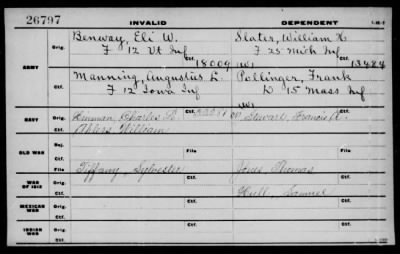 26797 INVALID DEPENDENT
ARMY
Orig. Benway, Eli W. Slater, William H
F 12 Vt Inf F 25 Mich Inf
Ctf. 18009 (W) Ctf. 13484
Manning, Augustus L. Pollinger, Frank
F 12 Iowa Inf D 15 Mass Inf
(W)
NAVY Orig. Kinman, Charles Stewart, Francis A.
Ctf. Ahlers, William
OLD WAR
Inj. File File
Ctf.
WAR OF 1812
Orig. Tiffany, Sylvester Jones, Thomas
Ctf. Hull, Samuel
MEXICAN WAR
Orig.
Ctf.
INDIAN WAR
Orig.
Ctf.